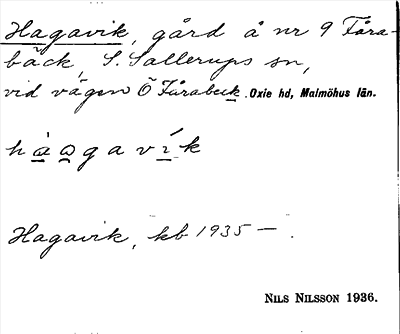 Hagavik, gård å nr 9 Fåra-
bäck, S. Sallerups sn,
vid vägen Ö Fårabäck. Oxie hd, Malmöhus län.
hàɷgavík
Hagavik, kb 1935 —.
NILS NILSSON 1936.